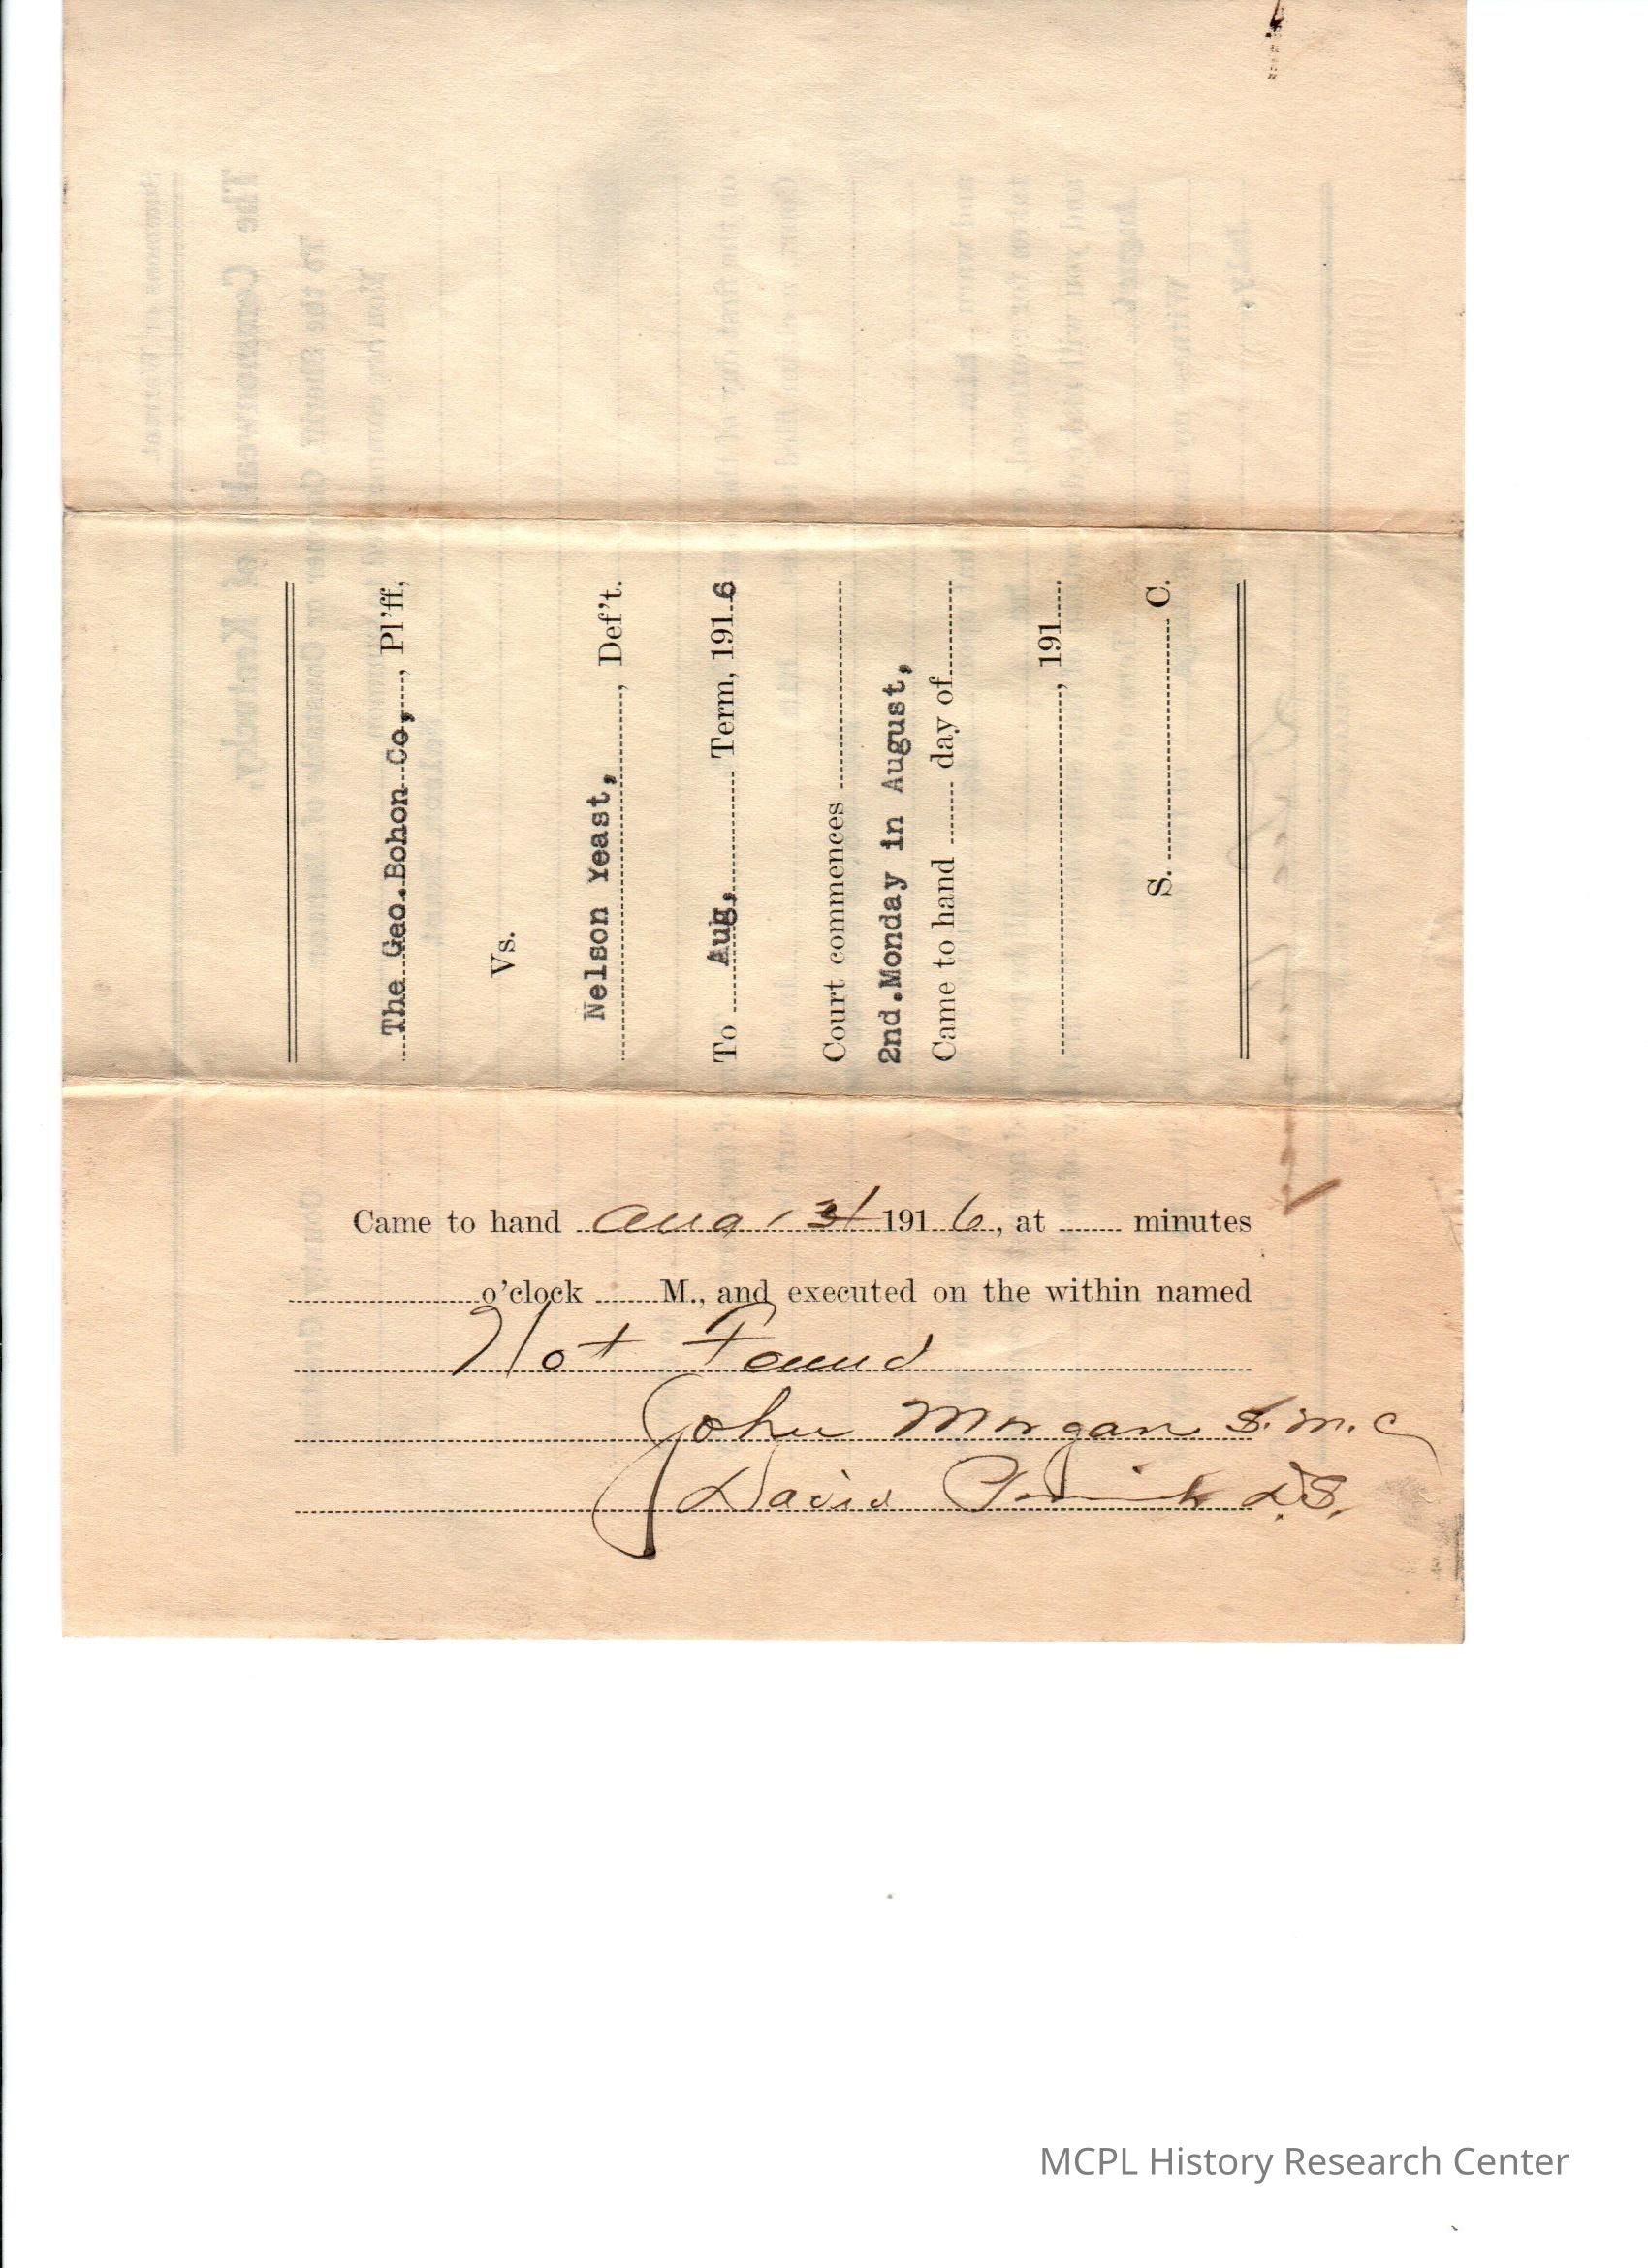 The Geo.Bohon Co,, Pl'ff,
Vs.
Nelson Yeast,, Def't.
To Aug, Term, 1916
Court commences
2nd.Monday in August,
Came to hand day of
, 191
S. C.
Came to hand Aug 1916, at minutes
o'clock M., and executed on the within named
Not Found
John Morgan S.M.C
David D.S.
MCPL History Research Center